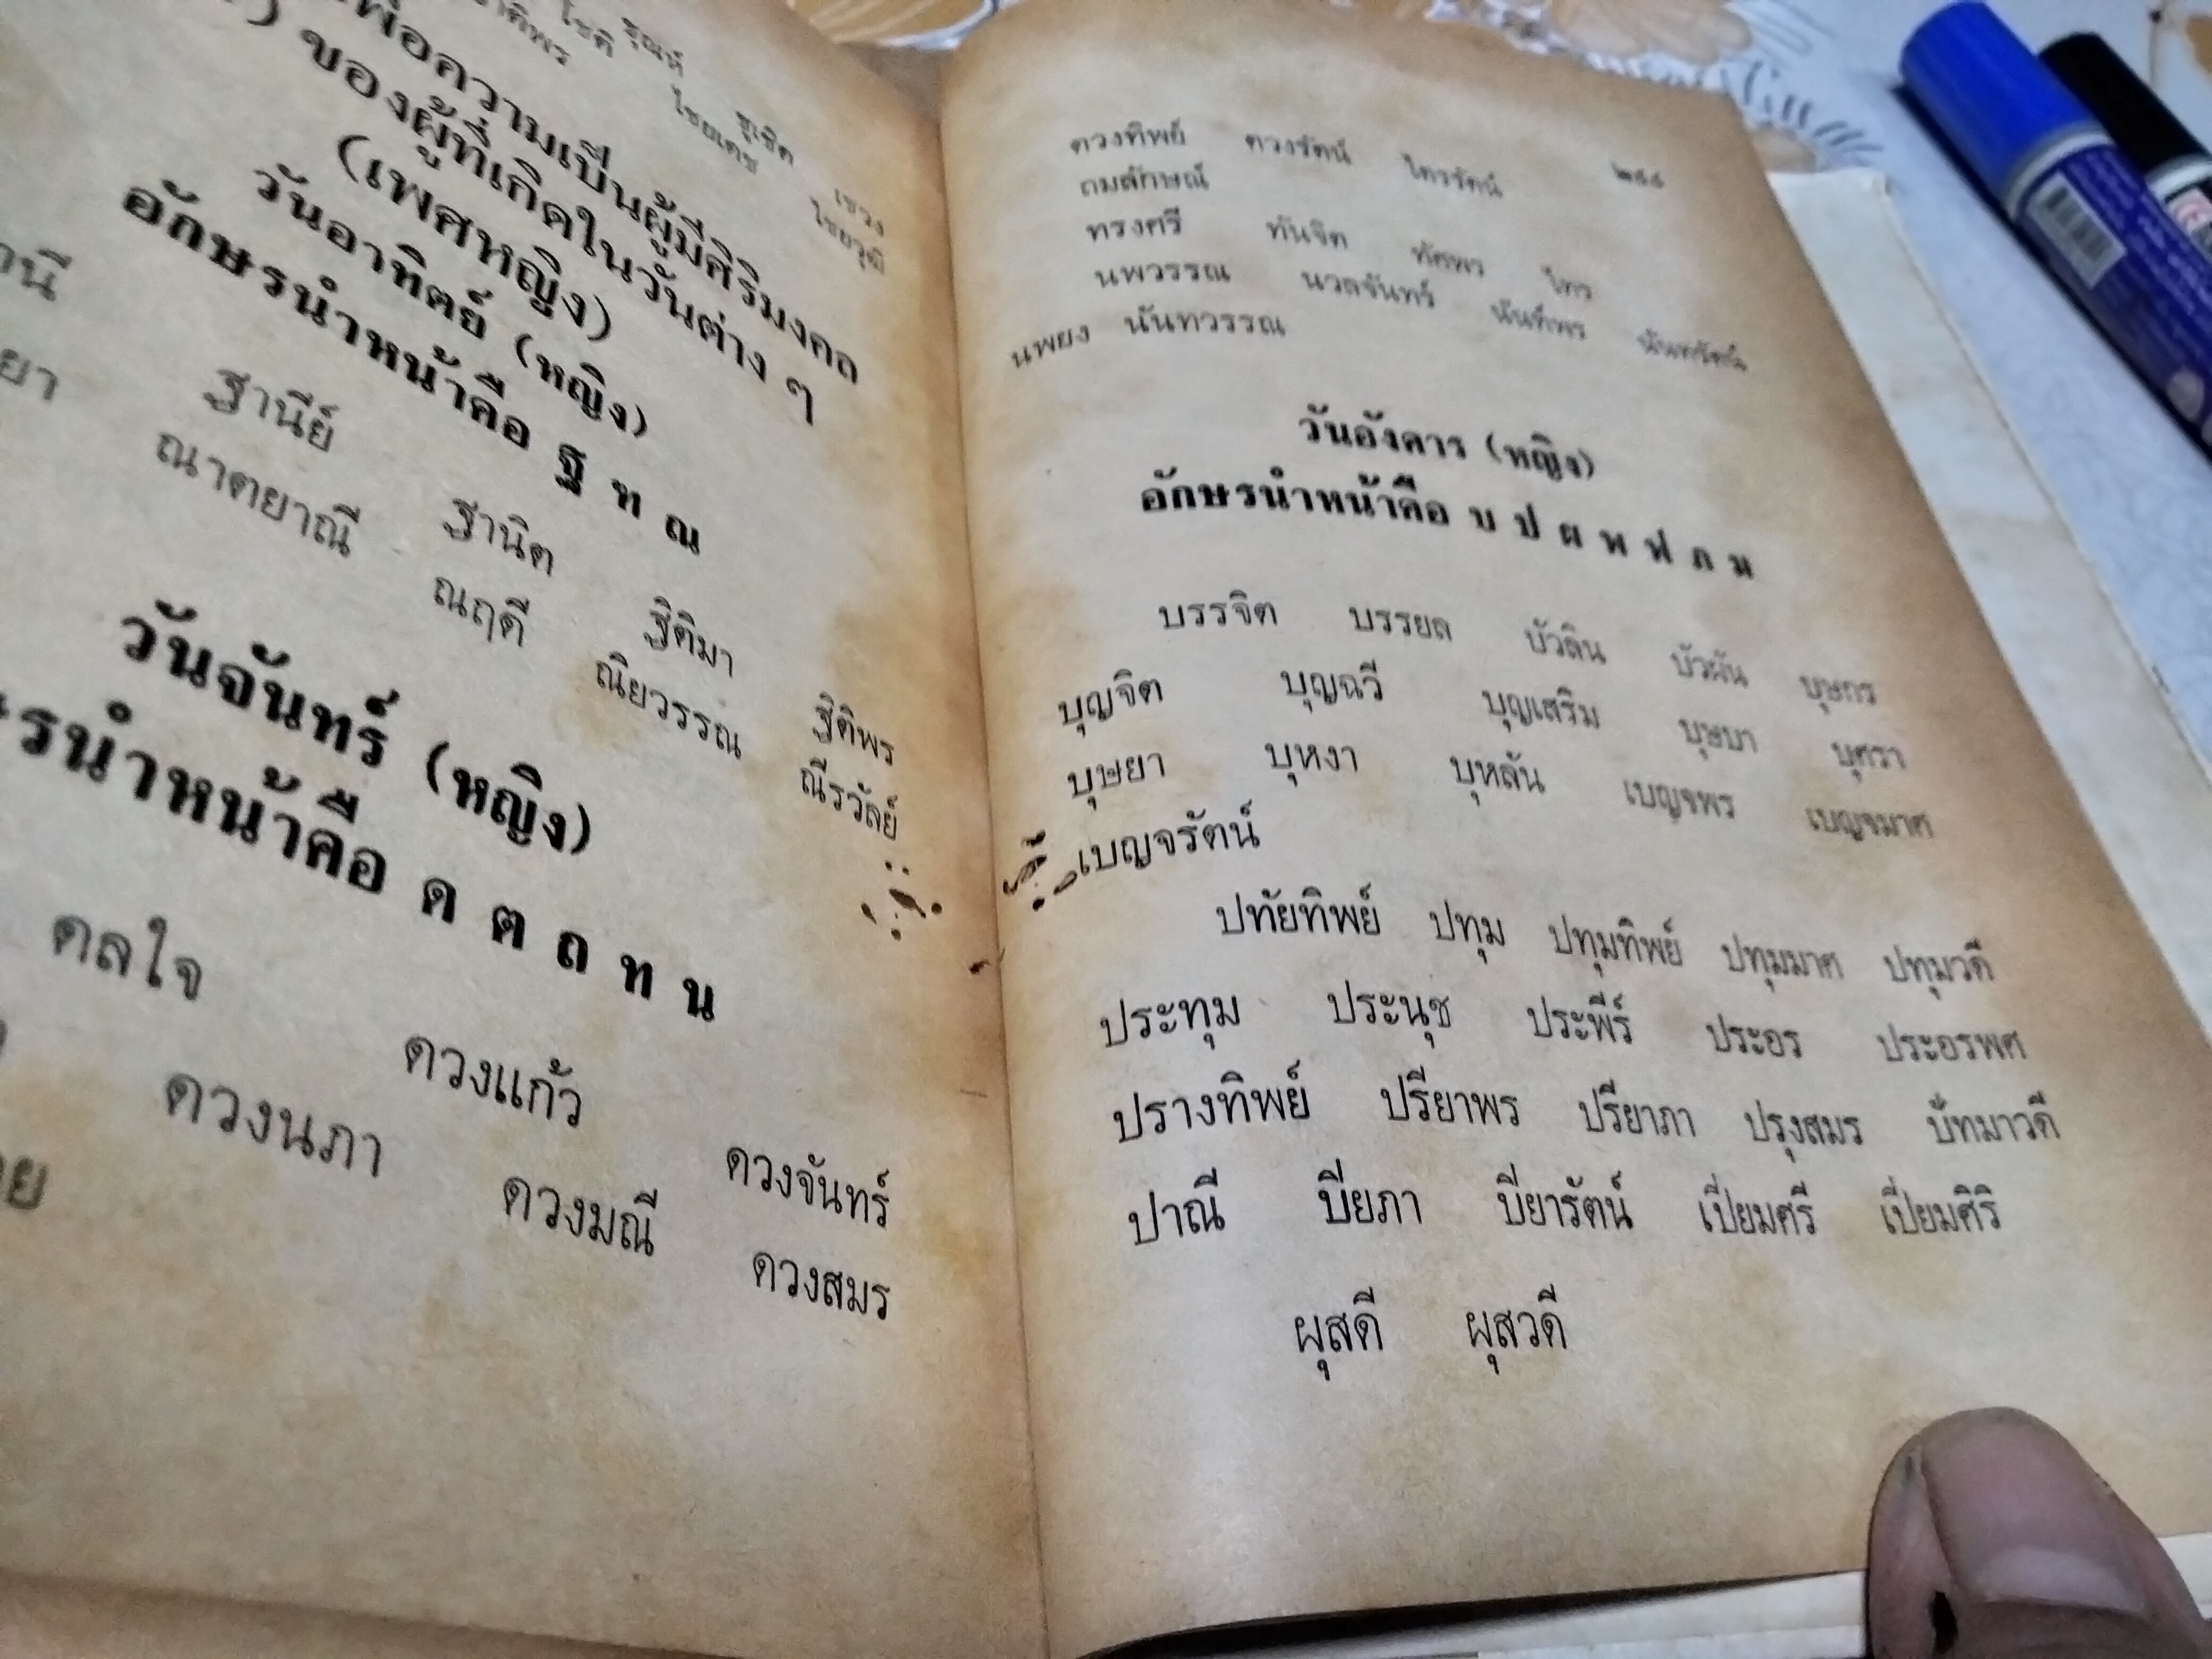 โชติ รุณห์ ชูเชิด เชวง
ไชยเดช ไชยวุฒิ
เพื่อความเป็นผู้มีศิริมงคล
ของผู้ที่เกิดในวันต่าง ๆ
(เพศหญิง)
วันอาทิตย์ (หญิง)
อักษรนำหน้าคือ ฐ ฑ ณ
ฐานีย์ ฐานิต ฐิติมา ฐิติพร
ณาตยาณี ณฤดี ณิยวรรณ ณีรวัลย์
วันจันทร์ (หญิง)
รนำหน้าคือ ด ต ถ ท น
ดลใจ ดวงแก้ว ดวงจันทร์
ดวงนภา ดวงมณี ดวงสมร
ดวงทิพย์ ดวงรัตน์ ไตรรัตน์
ถมลักษณ์
ทรงศรี ทันจิต ทัศพร ไทร
นพวรรณ นวลจันทร์ นันทิพร นันทรัตน์
นพยง นันทวรรณ
วันอังคาร (หญิง)
อักษรนำหน้าคือ บ ป ผ พ ฟ ภ ม
บรรจิต บรรยล บัวลิน บัวผัน บุษกร
บุญจิต บุญฉวี บุญเสริม บุษบา บุศรา
บุษยา บุหงา บุหลัน เบญจพร เบญจมาศ
เบญจรัตน์
ปทัยทิพย์ ปทุม ปทุมทิพย์ ปทุมมาศ ปทุมวดี
ประทุม ประนุช ประพีร์ ประอร ประอรพศ
ปรางทิพย์ ปรียาพร ปรียาภา ปรุงสมร ปัทมาวดี
ปาณี ปิยภา ปิยารัตน์ เปี่ยมศรี เปี่ยมศิริ
ผุสดี ผุสวดี